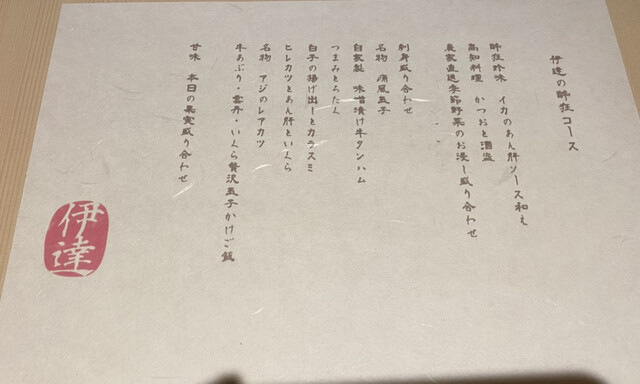 伊達の酔狂コース
酔狂珍味 イカのあん肝ソース和え
高知料理 かつおと酒盗
農家直送季節野菜のお浸し盛り合わせ
刺身盛り合わせ
名物 痛風玉子
自家製 味噌漬け牛タンハム
つまみとろたく
白子の揚げ出しとカラスミ
ヒレカツとあん肝といくら
名物 アジのレアカツ
牛あぶり・雲丹・いくら贅沢玉子かけご飯
甘味 本日の果実盛り合わせ
伊達